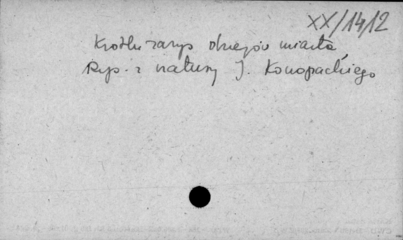 XX/1412
Krótki zarys dziejów miasta,
Rys. z natury J. Konopackiego